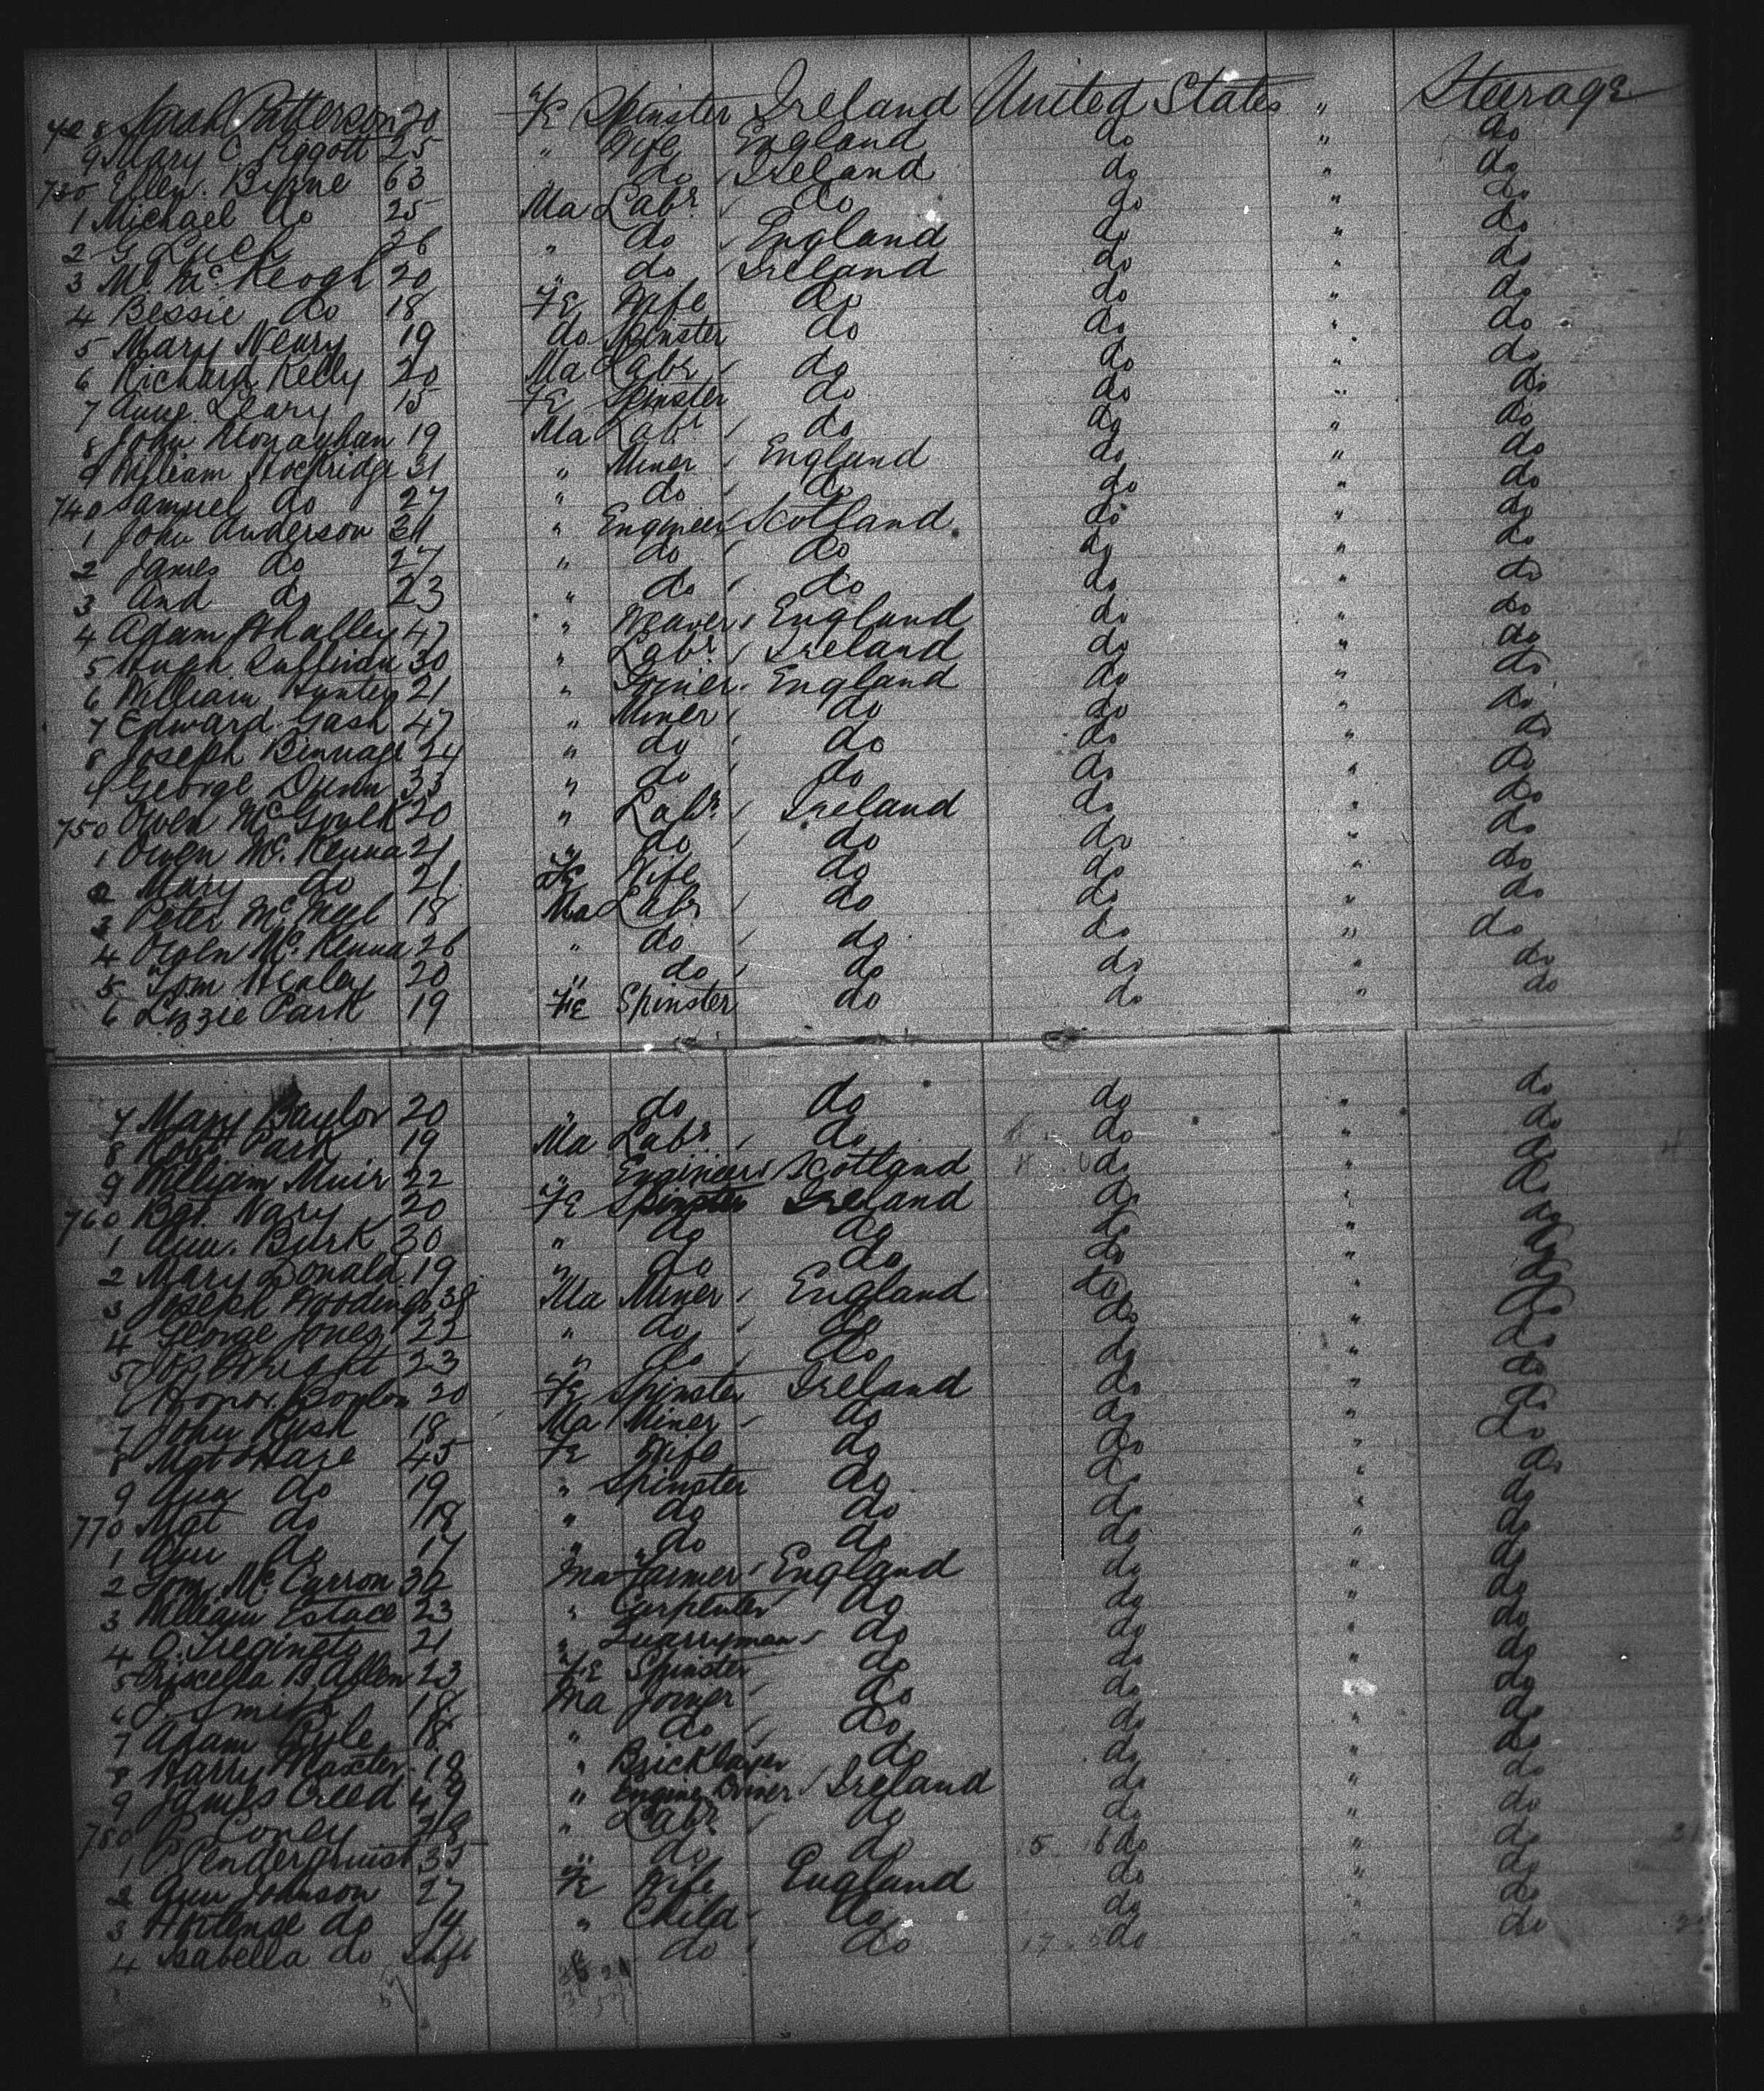 728 Sarah Patterson 20 F/E Spinster Ireland United States " Steerage
9 Mary C. Piggott 25 " Wife England do " do
730 Ellen Byrne 63 " do Ireland do " do
1 Michael do 25 Ma Labr. do do " do
2 G Luck 26 " do England do " do
3 Ml. McKeogh 20 " do Ireland do " do
4 Bessie do 18 F/E Wife do do " do
5 Mary Neary 19 do Spinster do do " do
6 Richard Kelly 20 Ma Labr do do " do
7 Anne Leary 15 F/E Spinster do do " do
8 John Monaghan 19 Ma Labr do do " do
9 William Hockridge 31 " Miner England do " do
740 Samuel do 27 " do do do " do
1 John Anderson 31 " Engineer Scotland do " do
2 James do 27 " do do do " do
3 And do 23 " do do do " do
4 Adam Whalley 47 " Weaver England do " do
5 Hugh 30 " Labr. Ireland do " do
6 William Hunter 21 " Joiner England do " do
7 Edward Gash 47 " Miner do do " do
8 Joseph 24 " do do do " do
9 George Dunn 33 " do do do " do
750 Owen 20 " Labr. Ireland do " do
1 Owen McKenna 21 " do do do " do
2 Mary do 21 F/E Wife do do " do
3 Peter McMeel 18 Ma Labr do do " do
4 Owen McKenna 26 " do do do " do
5 Tom Healey 20 " do do do " do
6 Lizzie Park 19 F/E Spinster do do " do
7 Mary Baylor 20 " do do do " do
8 Robt. Park 19 Ma Labr do do " do
9 William Muir 22 " Engineer Scotland do " do
760 Bgt. Nary 20 F/E Spinster Ireland do " do
1 Ann. Burk 30 " do do do " do
2 Mary Donald 19 " do do do " do
3 Joseph Woodings 38 Ma Miner England do " do
4 George Jones 22 " do do do " do
5 Jos Wright 23 " do do do " do
6 Honor. 20 F/E Spinster Ireland do " do
7 John Rush 18 Ma Miner do do " do
8 Mgt Hare 45 F/E Wife do do " do
9 Ann do 19 " Spinster do do " do
770 Mgt do 18 " do do do " do
1 Ann do 17 " do do do " do
2 Tom McCarron 32 Ma Farmer England do " do
3 William Estace 23 " Carpenter do do " do
4 21 " Quarryman do do " do
5 Priscella B. Allen 23 F/E Spinster do do " do
6 J. Smith 18 Ma Joiner do do " do
7 Adam Pyle 18 " do do do " do
8 Harry 19 " Bricklayer do do " do
9 James Creed 49 " Engine Driver Ireland do " do
780 P. Coney " Labr do do " do
1 P. 35 " do do do " do
2 Ann Johnson 27 F/E Wife England do " do
3 Hortense do " Child do do " do
4 Isabella do Inft " do do do " do